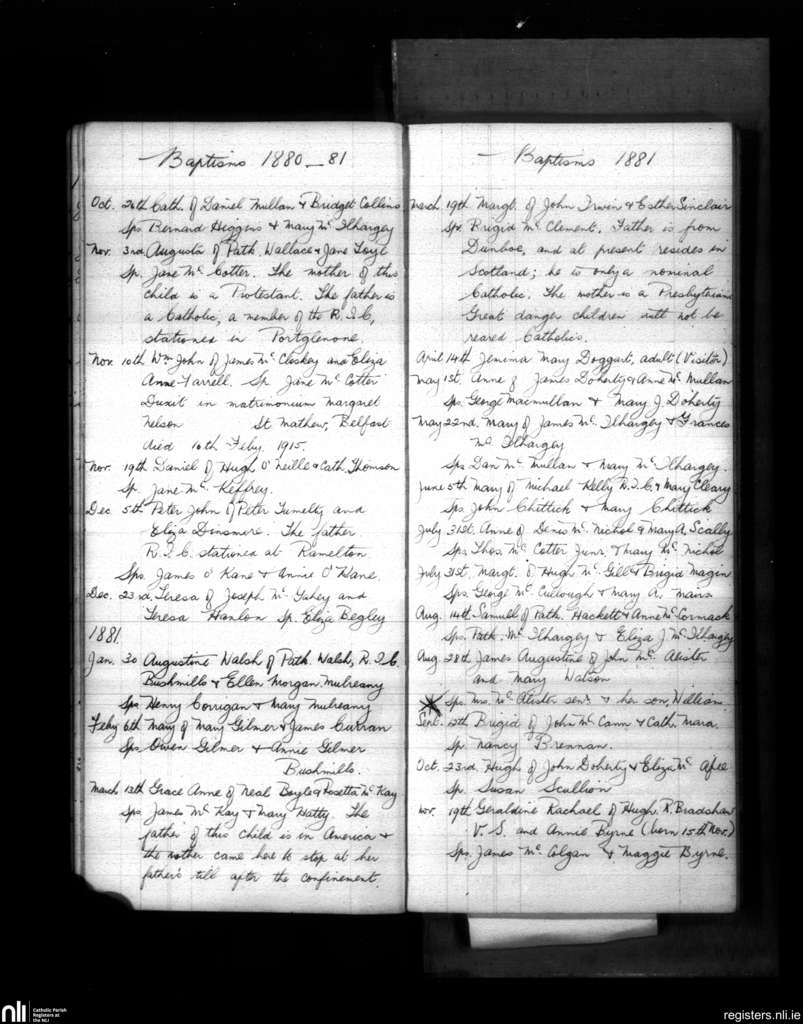 Baptisms 1880-81
Oct. 26th Cath. of Daniel Mullan & Bridget Collins
Sps Bernard Higgins & Mary Mc Ilhargey
Nov. 3rd Augusta of Path. Wallace & Jane
Sp. Jane Mc Cotter. The mother of this
child is a Protestant. The father is
a Catholic, a member of the R.I.C,
stationed in Portglenone.
Nov. 10th Wm John of James Mc Closkey and Eliza
Anne Farrell. Sp Jane Mc Cotter
Duxit in matrimonium Margaret
Nelson St Mathew, Belfast
died 16th Feby. 1915.
Nov. 19th Daniel of Hugh O'Neille & Cath. Thomson
Sp. Jane Mc Keffrey.
Dec 5th Peter John of Peter Tumelty and
Eliza Dinsmore. The father
R.I.C. stationed at Ramelton
Sps. James O'Kane & Annie O'Kane.
Dec. 23rd. Teresa of Joseph Mc Gahey and
Teresa Hanlon Sp. Eliza Begley
1881.
Jan. 30 Augustine Walsh of Path. Walsh, R.I.C.
Bushmills & Ellen Morgan Mulreany
Sps Henry Corrigan & Mary Mulreany
Feby 6th Mary of Mary Gilmer & James Curran
Sps. Owen Gilmer & Annie Gilmer
Bushmills.
March 13th Grace Anne of Neal Boyle & Rosetta Mc Kay
Sps James Mc Kay & Mary Hatty. The
father of this child is in America &
the mother came here to stop at her
father's till after the confinement.
Baptisms 1881
March 19th Margt. of John Irwin & Esther Sinclair
Sp. Brigid Mc Clement. Father is from
Dunboe, and at present resides in
Scotland; he is only a nominal
Catholic. The mother is a Presbyterian
Great danger children will not be
reared Catholics.
April 14th Jemima Mary Doggart, adult (Visitor)
May 1st. Anne of James Doherty & Anne Mc Mullan
Sps. George Macmullan & Mary J. Doherty
May 22nd. Mary of James Mc Ilhargey & Frances
Mc Ilhargey
Sps Dan Mc Mullan & Mary Mc Ilhargey.
June 5th Mary of Michael Kelly R.I.C. & Mary Cleary
Sps John Chittick & Mary Chittick
July 31st. Anne of Denis Mc Nichol & Mary A. Scally
Sps. Thos. Mc Cotter Junr. & Mary Mc Nichol
July 31st. Margt. of Hugh Mc Gill & Brigid Magin
Sps. George Mc Cullough & Mary A. Mairs
Aug. 14th Samuel of Path. Hackett & Anne Mc Cormack
Sps. Path. Mc Ilhargey & Eliza J. Mc Ilhargey
Aug. 28th James Augustine of Jhn Mc Alister
and Mary Watson
Sps Mrs. Mc Alister senr & her son, William.
Sent. 12th Brigid of John Mc Cann & Cath. Mara.
Sp. Nancy Brennan.
Oct. 23rd. Hugh of John Doherty & Eliza Mc Afee
Sp. Susan Scullion
Nov. 19th Geraldine Rachael of Hugh R. Bradshaw
V.S. and Annie Byrne (born 15th Nov.)
Sps. James Mc Colgan & Maggie Byrne.
nli
Catholic Parish
Registers at
the NLI
registers.nli.ie